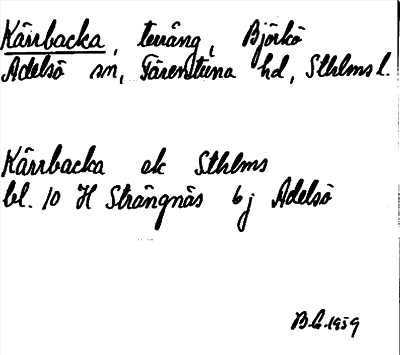 Kärrbacka, terräng, Björkö
Adelsö sn, Färentuna hd, Sthlms l.
Kärrbacka ek Sthlms
bl. 10 H Strängnäs 6j Adelsö
B.G. 1959